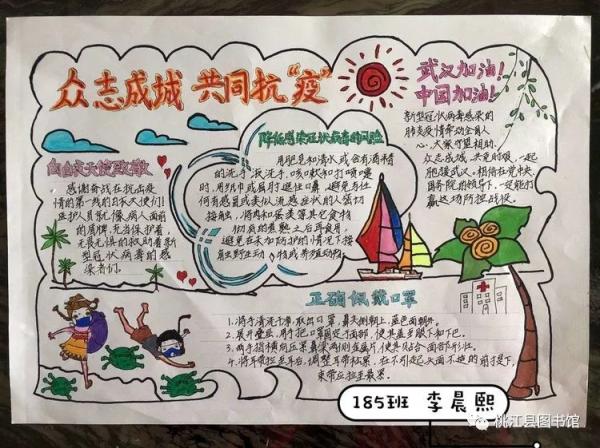 众志成城 共同抗“疫”
武汉加油！
中国加油！
新型冠状病毒感染的
肺炎疫情牵动全国人
心，大家守望相助，
众志成城，共克时艰，一起
胞援武汉。相信在党中央、
国务院的领导下，一定能打
赢这场防控战役。
降低感染冠状病毒的风险
用肥皂和清水或含有酒精
的洗手液洗手、咳嗽和打喷嚏
时，用纸巾或屈肘遮住口鼻，避免与任
何有感冒或类似流感症状的人密切
接触，将肉和蛋类等其它食物
彻底的煮熟之后再食用。
避免在未加防护的情况下接
触野生动物或养殖动物。
向白衣天使致敬
感谢奋战在抗击疫
情的第一线的白衣天使们！
医护人员就像病人面前
的盾牌，充当保护着，
无畏无惧的救助着新
型冠状病毒的感
染者们。
正确佩戴口罩
1.将手清洗干净，取出口罩，鼻夹侧朝上，蓝色面朝外。
2.展开叠层，用手把口罩固定于面部，使其盖多眼下和下巴。
3.两手指横向压紧鼻梁两侧金属片，使其贴合面部形状。
4.将手带拉至耳后，调整耳带松紧，在不引起头面不适的前提下，
束带应拉至最紧。
185班 李晨熙
桃江县图书馆